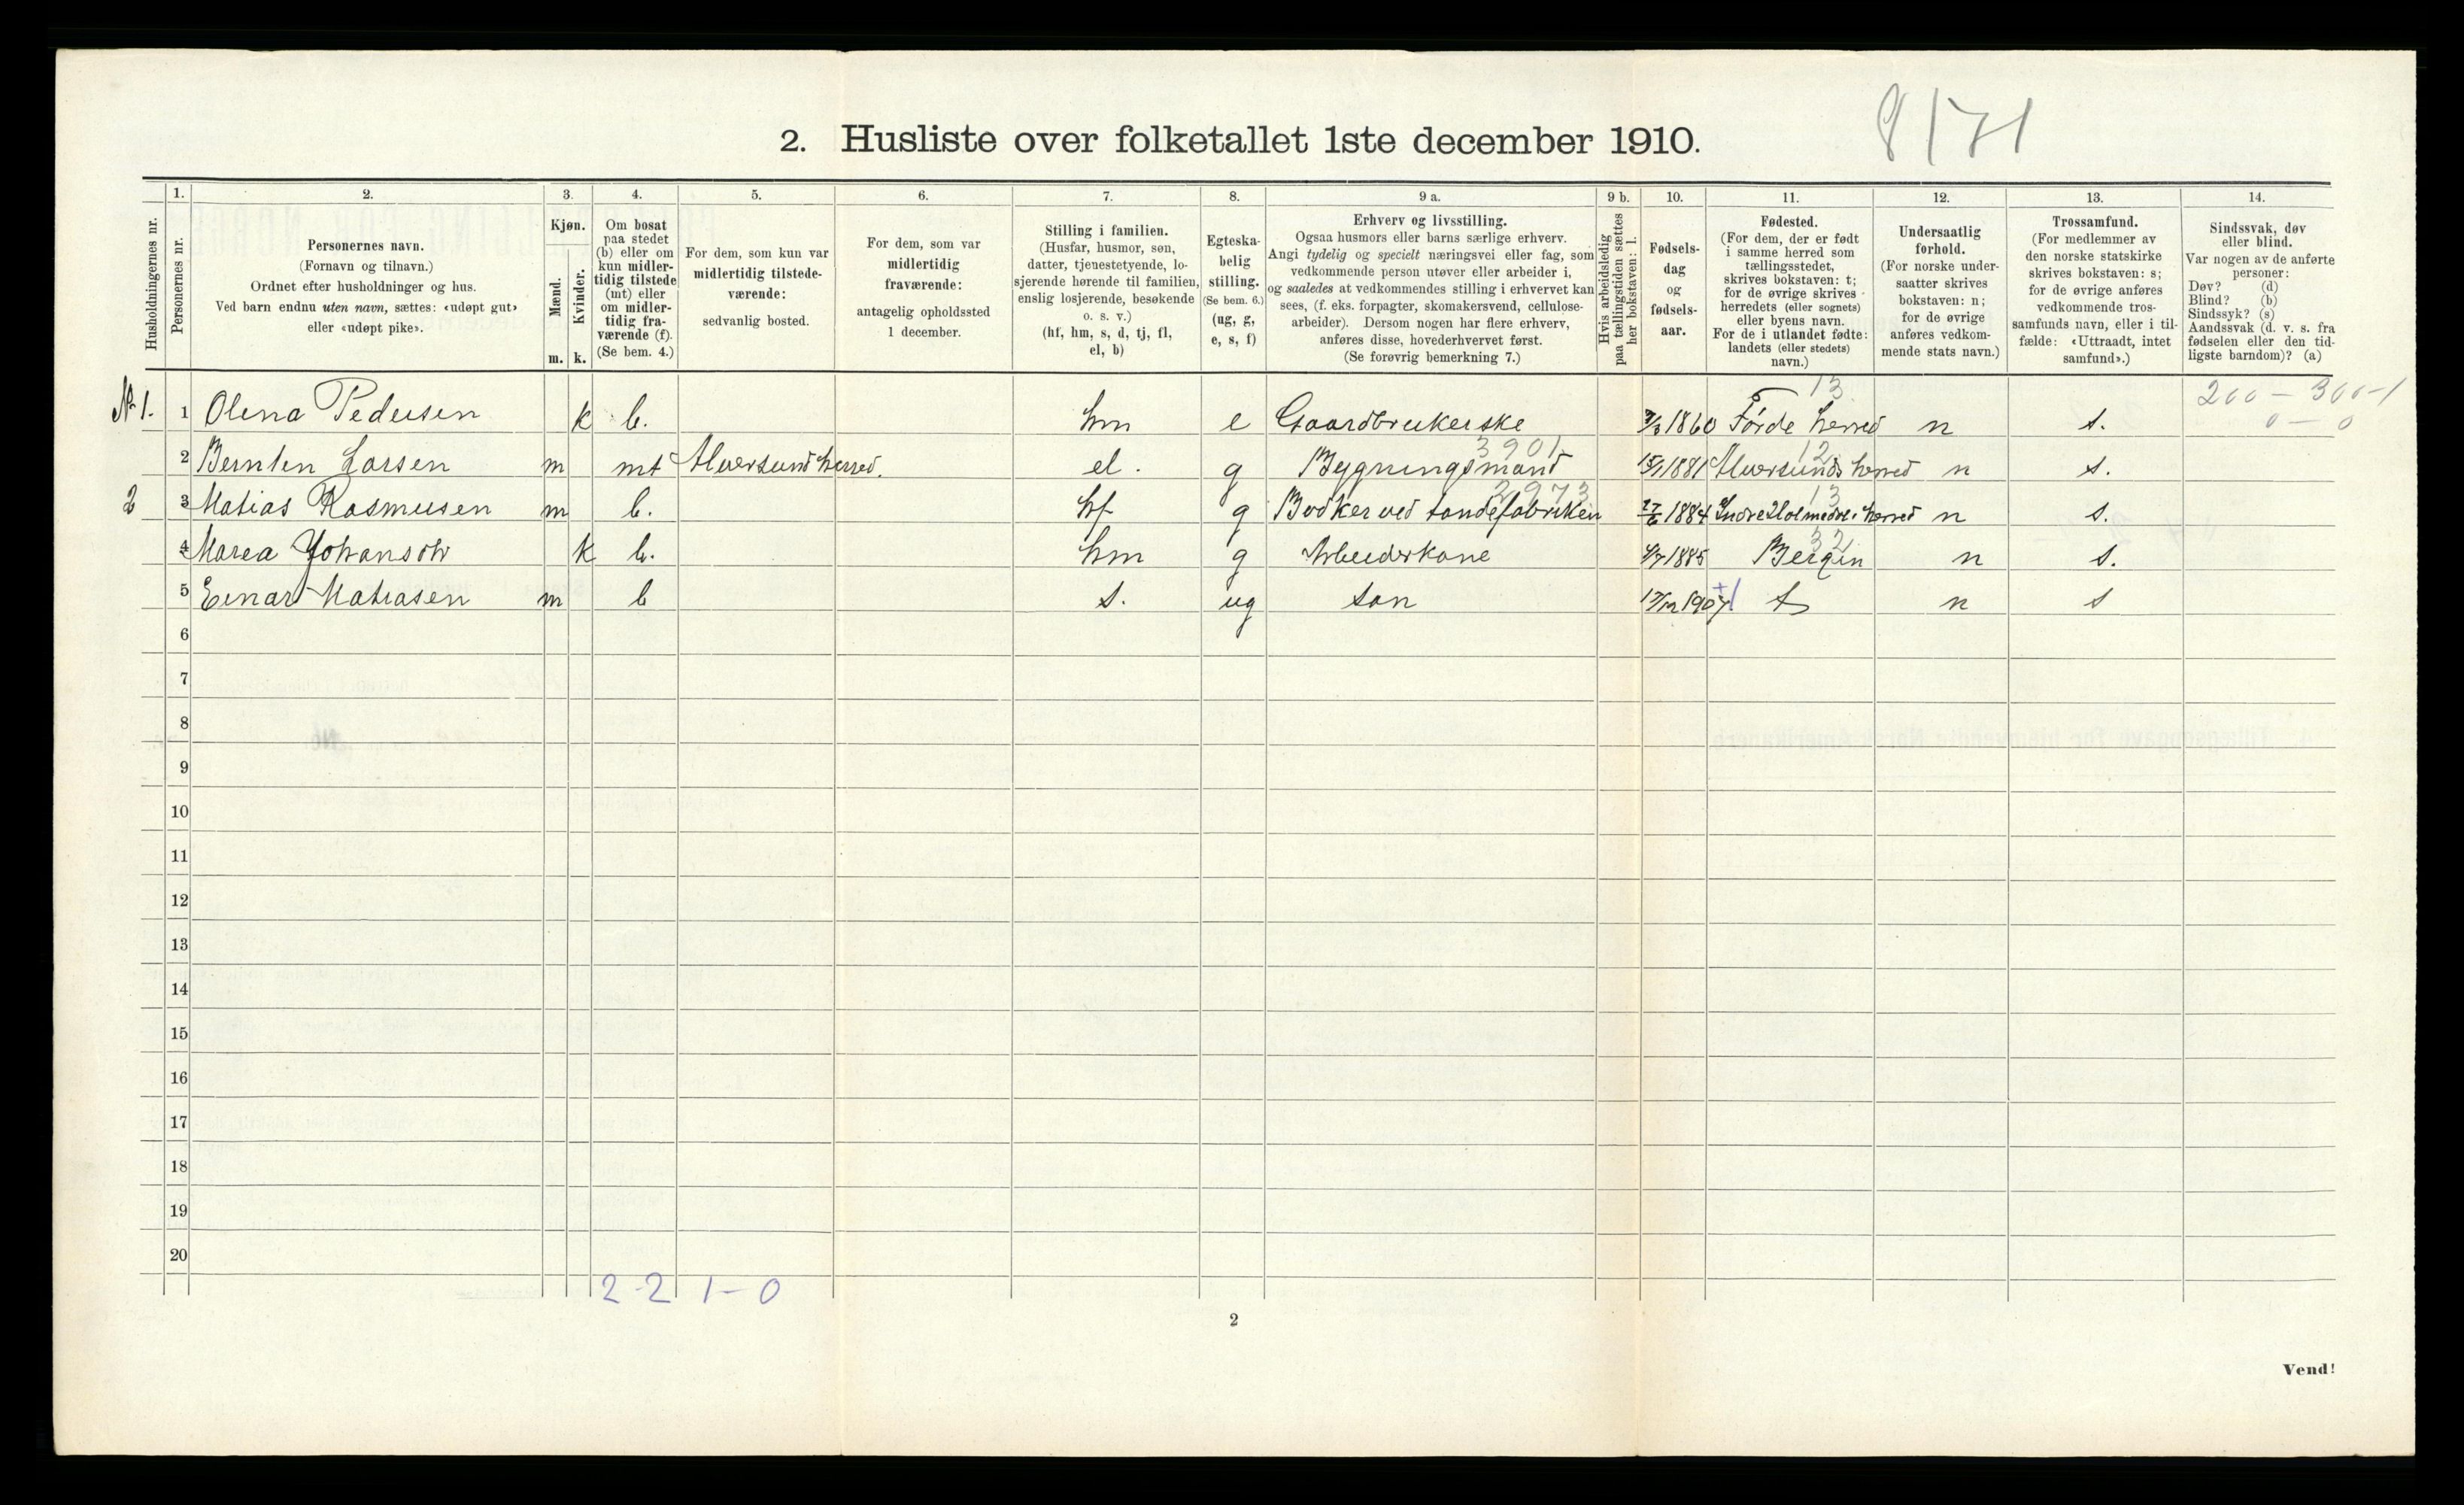 8171
2. Husliste over folketallet 1ste december 1910.
Husholdningernes nr.
1.
Personernes nr.
2.
Personernes navn.
(Fornavn og tilnavn.)
Ordnet efter husholdninger og hus.
Ved barn endnu uten navn, sættes: «udøpt gut»
eller «udøpt pike».
3.
Kjøn.
Mænd.
Kvinder.
m. k.
4.
Om bosat
paa stedet
(b) eller om
kun midler-
tidig tilstede
(mt) eller
om midler-
tidig fra-
værende (f).
(Se bem. 4.)
5.
For dem, som kun var
midlertidig tilstede-
værende:
sedvanlig bosted.
6.
For dem, som var
midlertidig
fraværende:
antagelig opholdssted
1 december.
7.
Stilling i familien.
(Husfar, husmor, søn,
datter, tjenestetyende, lo-
sjerende hørende til familien,
enslig losjerende, besøkende
o. s. v.)
(hf, hm, s, d, tj, fl,
el, b)
8.
Egteska-
belig
stilling.
(Se bem. 6.)
(ug, g,
e, s, f)
9 a.
Erhverv og livsstilling.
Ogsaa husmors eller barns særlige erhverv.
Angi tydelig og specielt næringsvei eller fag, som
vedkommende person utøver eller arbeider i,
og saaledes at vedkommendes stilling i erhvervet kan
sees, (f. eks. forpagter, skomakersvend, cellulose-
arbeider). Dersom nogen har flere erhverv,
anføres disse, hovederhvervet først.
(Se forøvrig bemerkning 7.)
9 b.
Hvis arbeidsledig
paa tællingstiden sættes
her bokstaven: l.
10.
Fødsels-
dag
og
fødsels-
aar.
11.
Fødested.
(For dem, der er født
i samme herred som
tællingsstedet,
skrives bokstaven: t;
for de øvrige skrives
herredets (eller sognets)
eller byens navn.
For de i utlandet fødte:
landets (eller stedets)
navn.)
12.
Undersaatlig
forhold.
(For norske under-
saatter skrives
bokstaven: n;
for de øvrige
anføres vedkom-
mende stats navn.)
13.
Trossamfund.
(For medlemmer av
den norske statskirke
skrives bokstaven: s;
for de øvrige anføres
vedkommende tros-
samfunds navn, eller i til-
fælde: «Uttraadt, intet
samfund».)
14.
Sindssvak, døv
eller blind.
Var nogen av de anførte
personer:
Døv? (d)
Blind? (b)
Sindssyk? (s)
Aandssvak (d. v. s. fra
fødselen eller den tid-
ligste barndom)? (a)
13 200 - 300-1
No 1. 1 Olena Pedersen k b. hm e Gaardbrukerske 1860 Førde herred n s. 0 - 0
3901 12
2 Bernten Larsen m mt Alversund herred. el. g Bygningsmand 15/1 1881 Alversunds herred n s.
2973 13
2 3 Matias Rasmusen m b. hf g Bødker ved tøndefabriken 27/6 1884 Indre Holmedal herred n s.
32
4 Marea Johansen k b. hm g Arbeiderkone 4/7 1885 Bergen n s.
5 Einar Matiasen m b s. ug søn 17/12 1907 t n s
6
7
8
9
10
11
12
13
14
15
16
17
18
19
20
2-2 1-0
2
Vend!